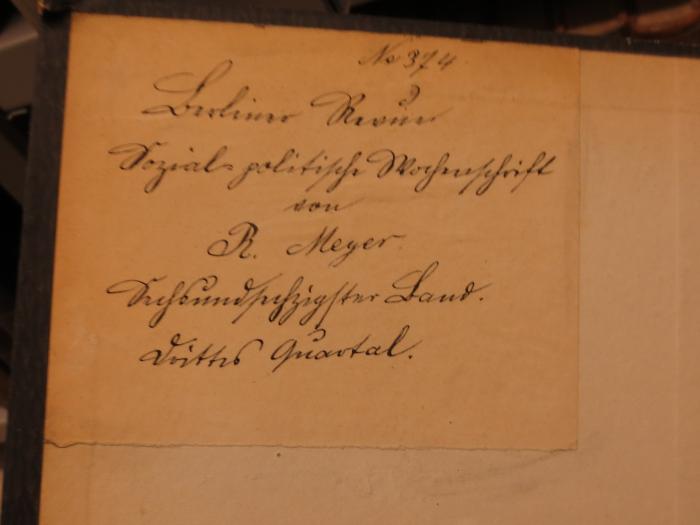 No 374
Berliner Revue
Sozial-politische Wochenschrift
von
R. Meyer.
Sechsundsechzigster Band.
Drittes Quartal.